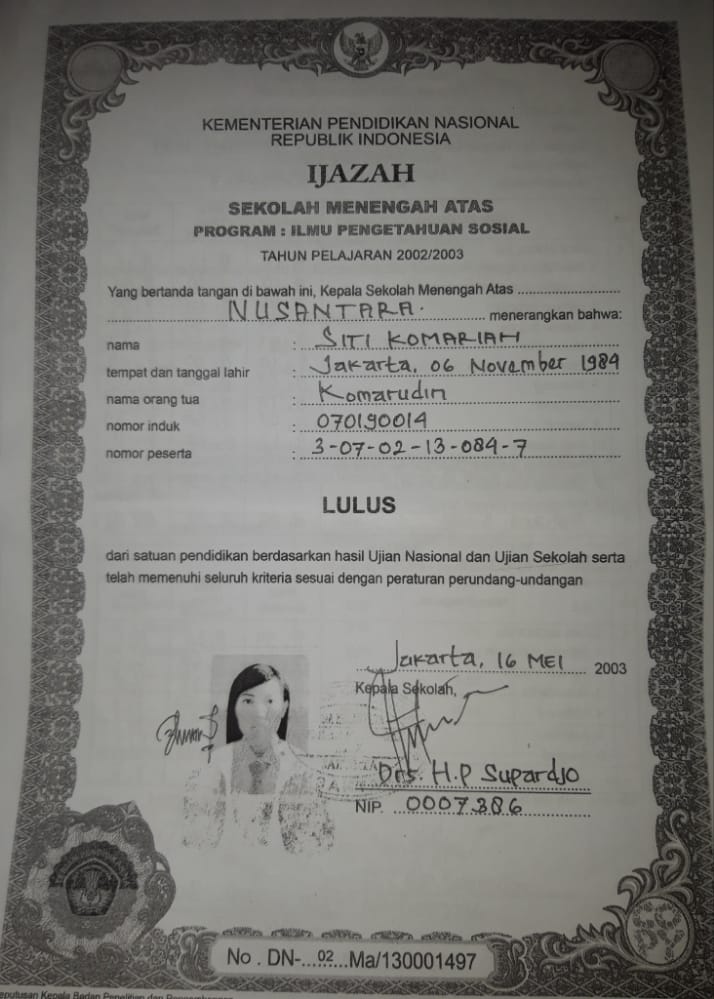 KEMENTERIAN PENDIDIKAN NASIONAL
REPUBLIK INDONESIA
IJAZAH
SEKOLAH MENENGAH ATAS
PROGRAM : ILMU PENGETAHUAN SOSIAL
TAHUN PELAJARAN 2002/2003
Yang bertanda tangan di bawah ini, Kepala Sekolah Menengah Atas
NUSANTARA. menerangkan bahwa:
nama : SITI KOMARIAH
tempat dan tanggal lahir : Jakarta, 06 November 1984
nama orang tua : Komarudin
nomor induk : 070190014
nomor peserta : 3-07-02-13-084-7
LULUS
dari satuan pendidikan berdasarkan hasil Ujian Nasional dan Ujian Sekolah serta
telah memenuhi seluruh kriteria sesuai dengan peraturan perundang-undangan
Jakarta, 16 MEI 2003
Kepala Sekolah,
Drs. H.P Supardjo
NIP. 0007386
No . DN-...02...Ma/130001497
Kepala Badan Penelitian dan